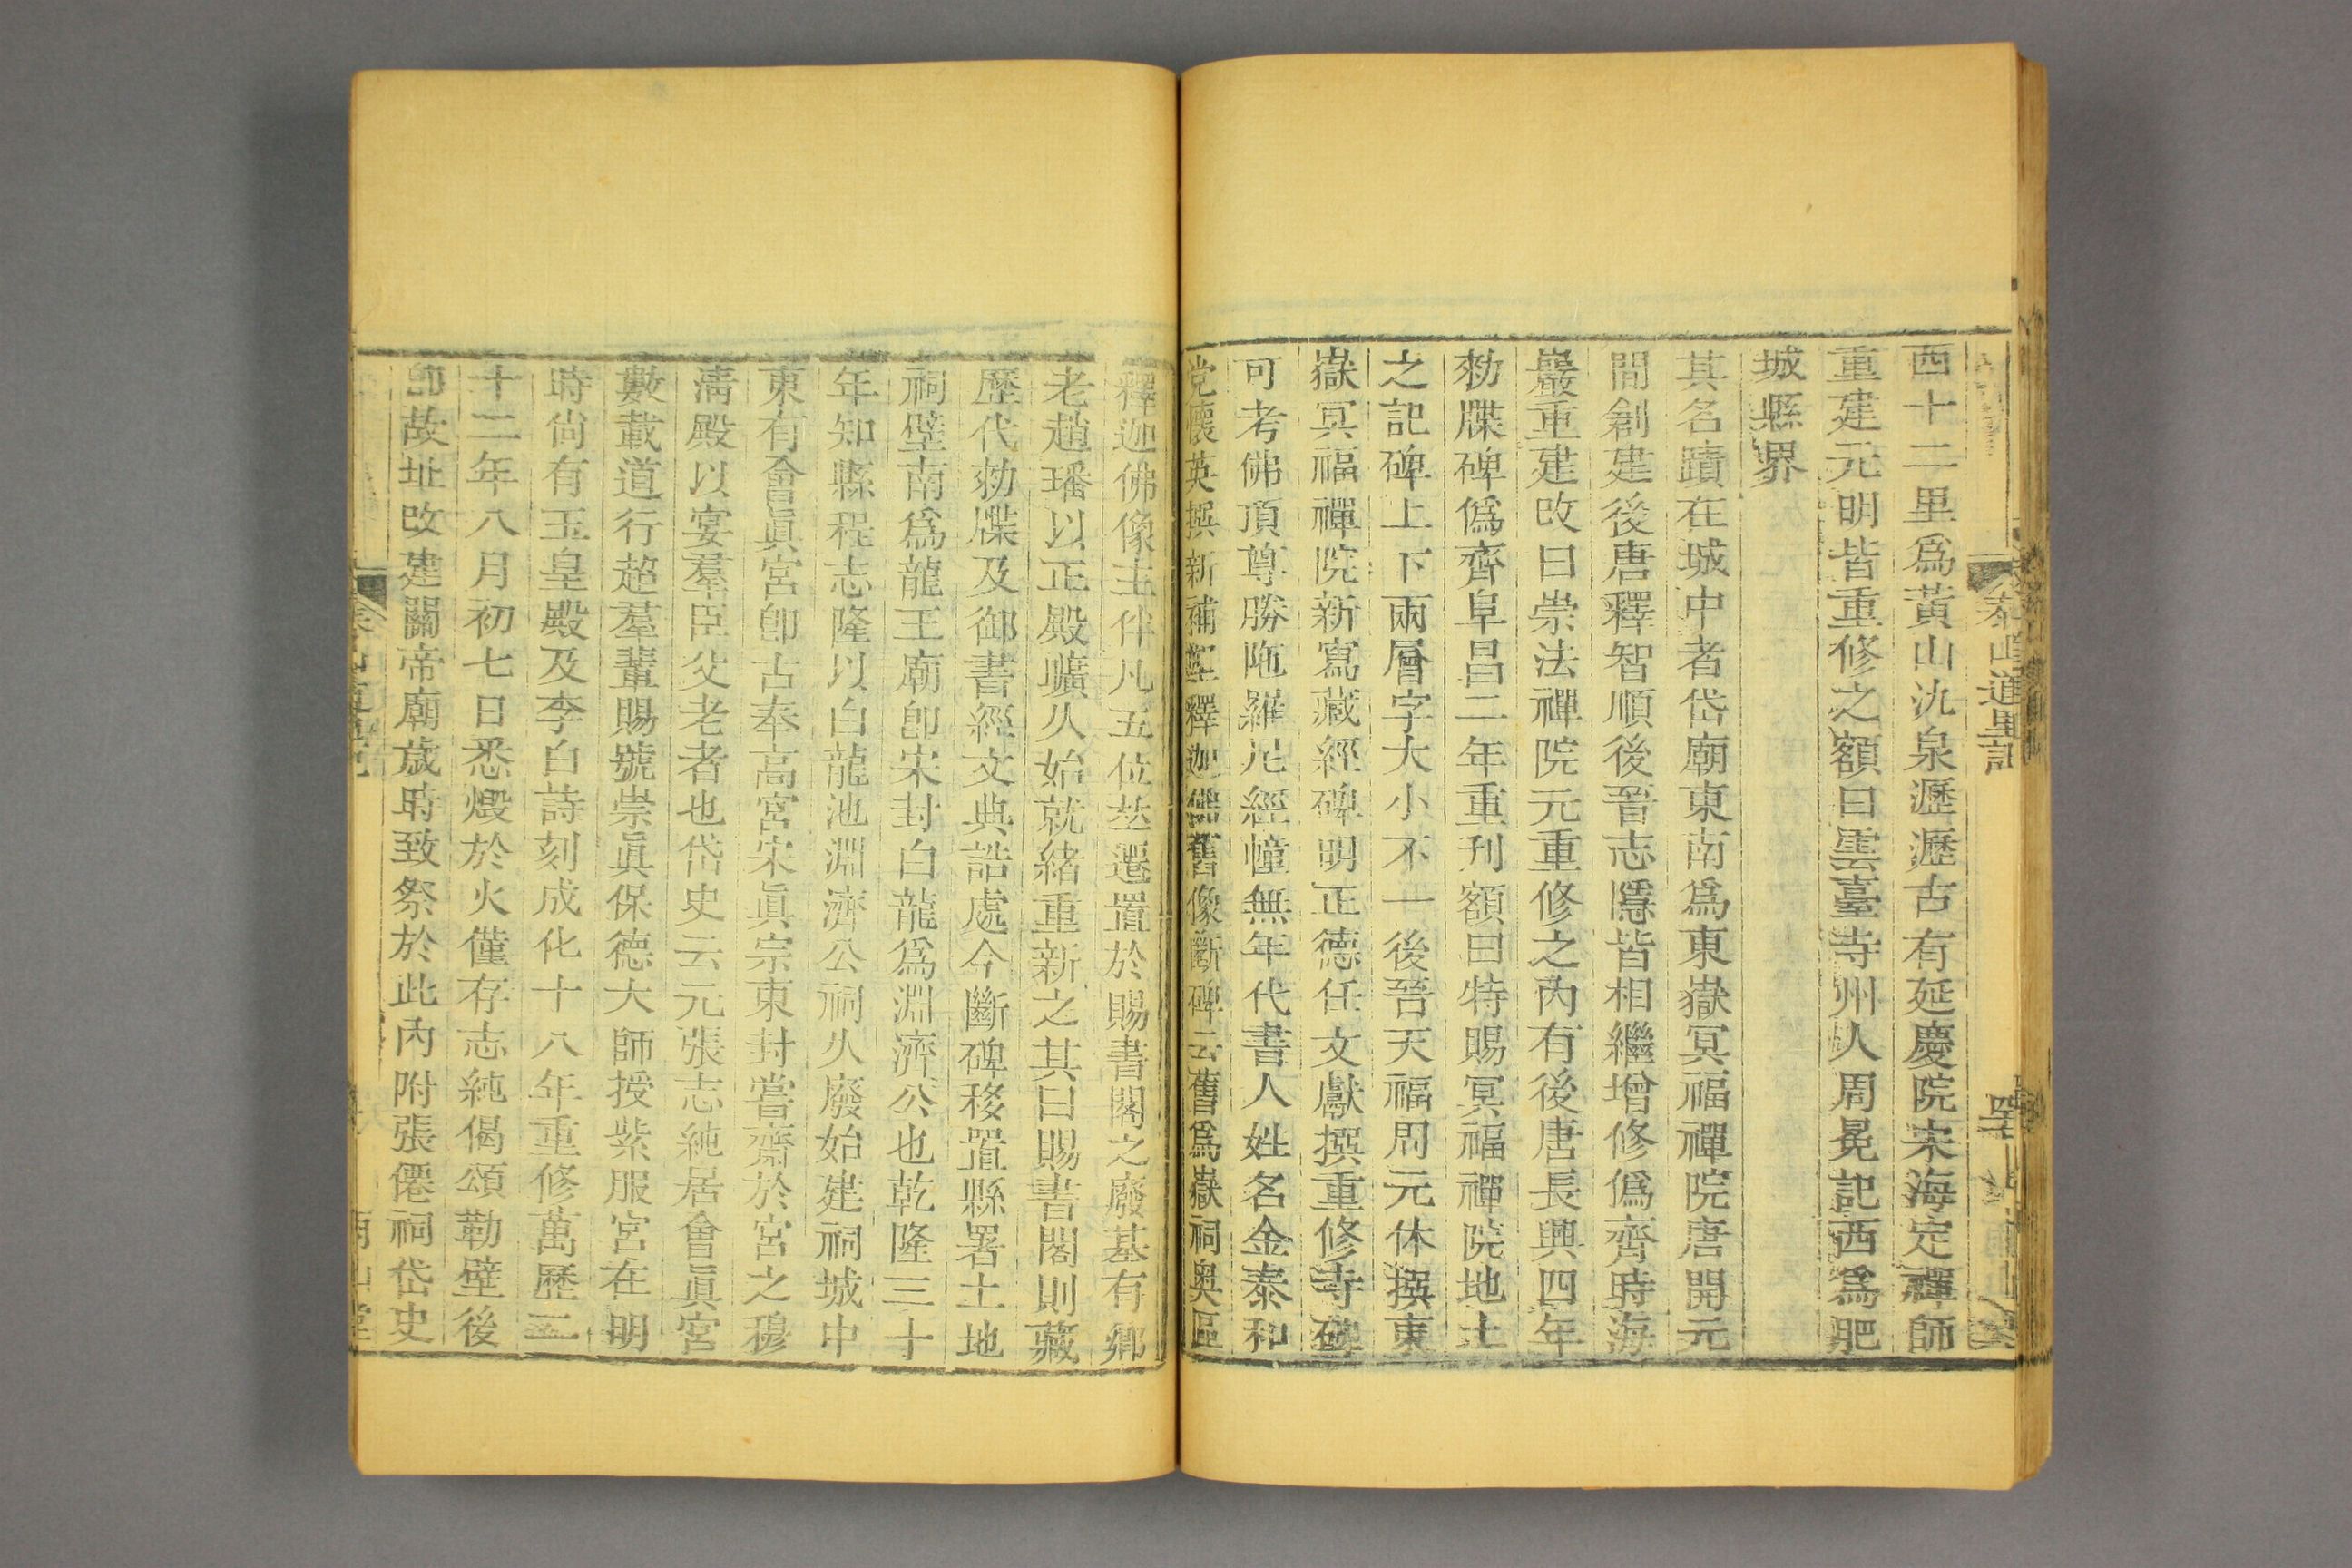 泰山道里記
西十二里爲黃山氿泉瀝瀝古有延慶院宋海定禪師
重建元明皆重修之額曰雲臺寺州人周冕記西爲肥
城縣界
其名蹟在城中者岱廟東南爲東嶽冥福禪院唐開元
間創建後唐釋智順後晉志隱皆相繼增修僞齊時海
巖重建改曰崇法禪院元重修之內有後唐長興四年
勑牒碑僞齊阜昌二年重刊額曰特賜冥福禪院地土
之記碑上下兩層字大小不一後晉天福間元休撰東
嶽冥福禪院新寫藏經碑明正德任文獻撰重修寺碑
可考佛頂尊勝陁羅尼經幢無年代書人姓名金泰和
党懷英撰新補塑釋迦佛舊像斷碑云舊爲嶽祠奧區
釋迦佛像主伴凡五位盆遷置於賜書閣之廢基有鄉
老趙璠以正殿曠久始就緒重新之其曰賜書閣則藏
歷代勑牒及御書經文典誥處今斷碑移置縣署土地
祠壁南爲龍王廟卽宋封白龍爲淵濟公也乾隆三十
年知縣程志隆以白龍池淵濟公祠久廢始建祠城中
東有會眞宮卽古奉高宮宋眞宗東封嘗齋於宮之穆
淸殿以宴羣臣父老者也岱史云元張志純居會眞宮
數載道行超羣輩賜號崇眞保德大師授紫服宮在明
時尙有玉皇殿及李白詩刻成化十八年重修萬歷三
十二年八月初七日悉燬於火僅存志純偈頌勒壁後
卽故址改建關帝廟歲時致祭於此內附張僊祠岱史